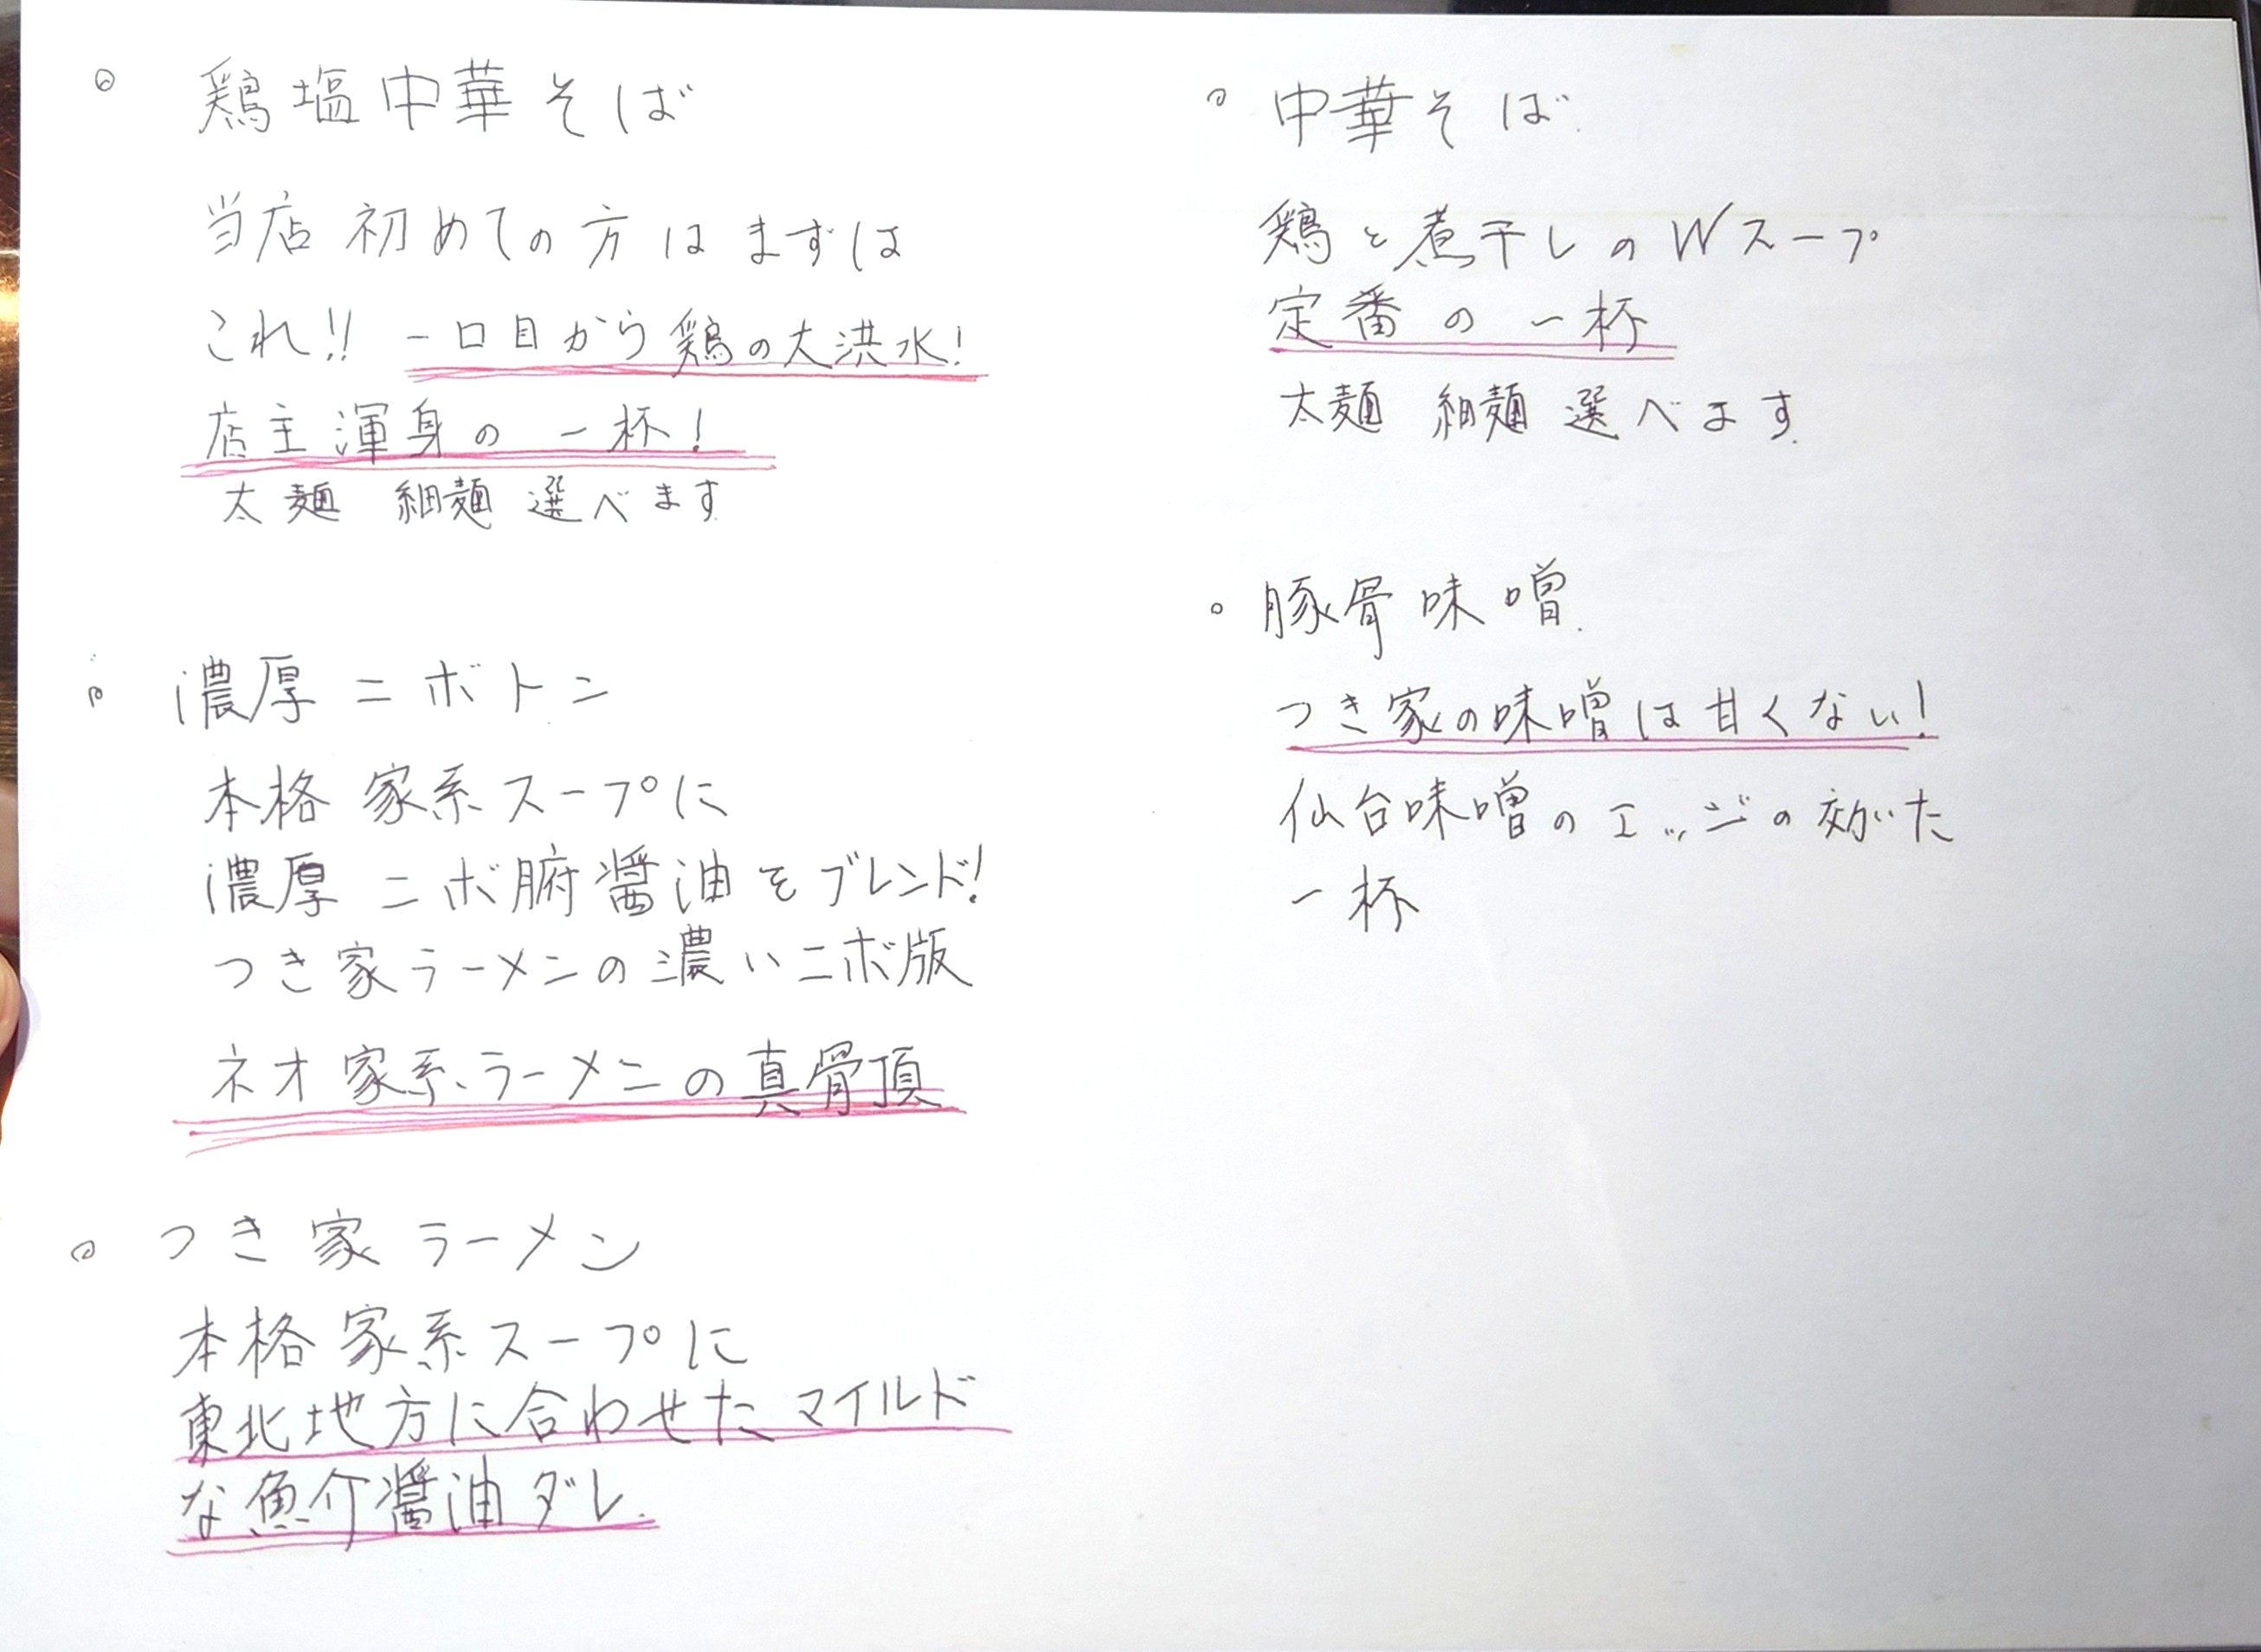 ◎ 鶏塩中華そば
当店初めての方はまずは
これ!! 一口目から鶏の大洪水!
店主渾身の一杯!
太麺 細麺 選べます
◦ 濃厚ニボトン
本格家系スープに
濃厚ニボ腑醤油をブレンド!
つき家ラーメンの濃いニボ版
ネオ家系ラーメンの真骨頂
◎ つき家ラーメン
本格家系スープに
東北地方に合わせたマイルド
な魚介醤油ダレ.
◦ 中華そば
鶏と煮干しのWスープ
定番の一杯
太麺 細麺 選べます
◦ 豚骨味噌
つき家の味噌は甘くない!
仙台味噌のエッジの効いた
一杯